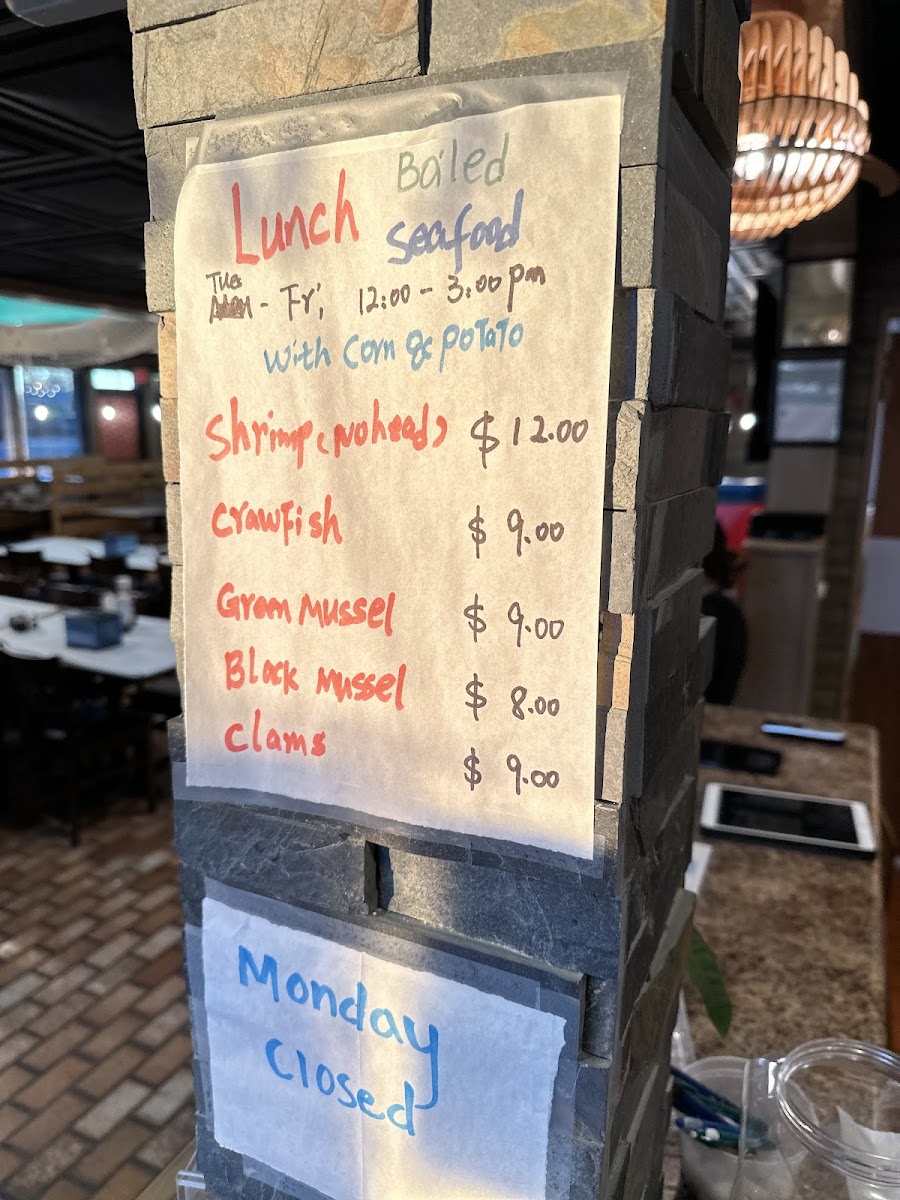 Lunch Boiled
Seafood
Tue - Fri, 12:00 - 3:00 pm
with corn & potato
Shrimp (no head) $12.00
Crawfish $ 9.00
Green Mussel $ 9.00
Black Mussel $ 8.00
Clams $ 9.00
Monday
Closed